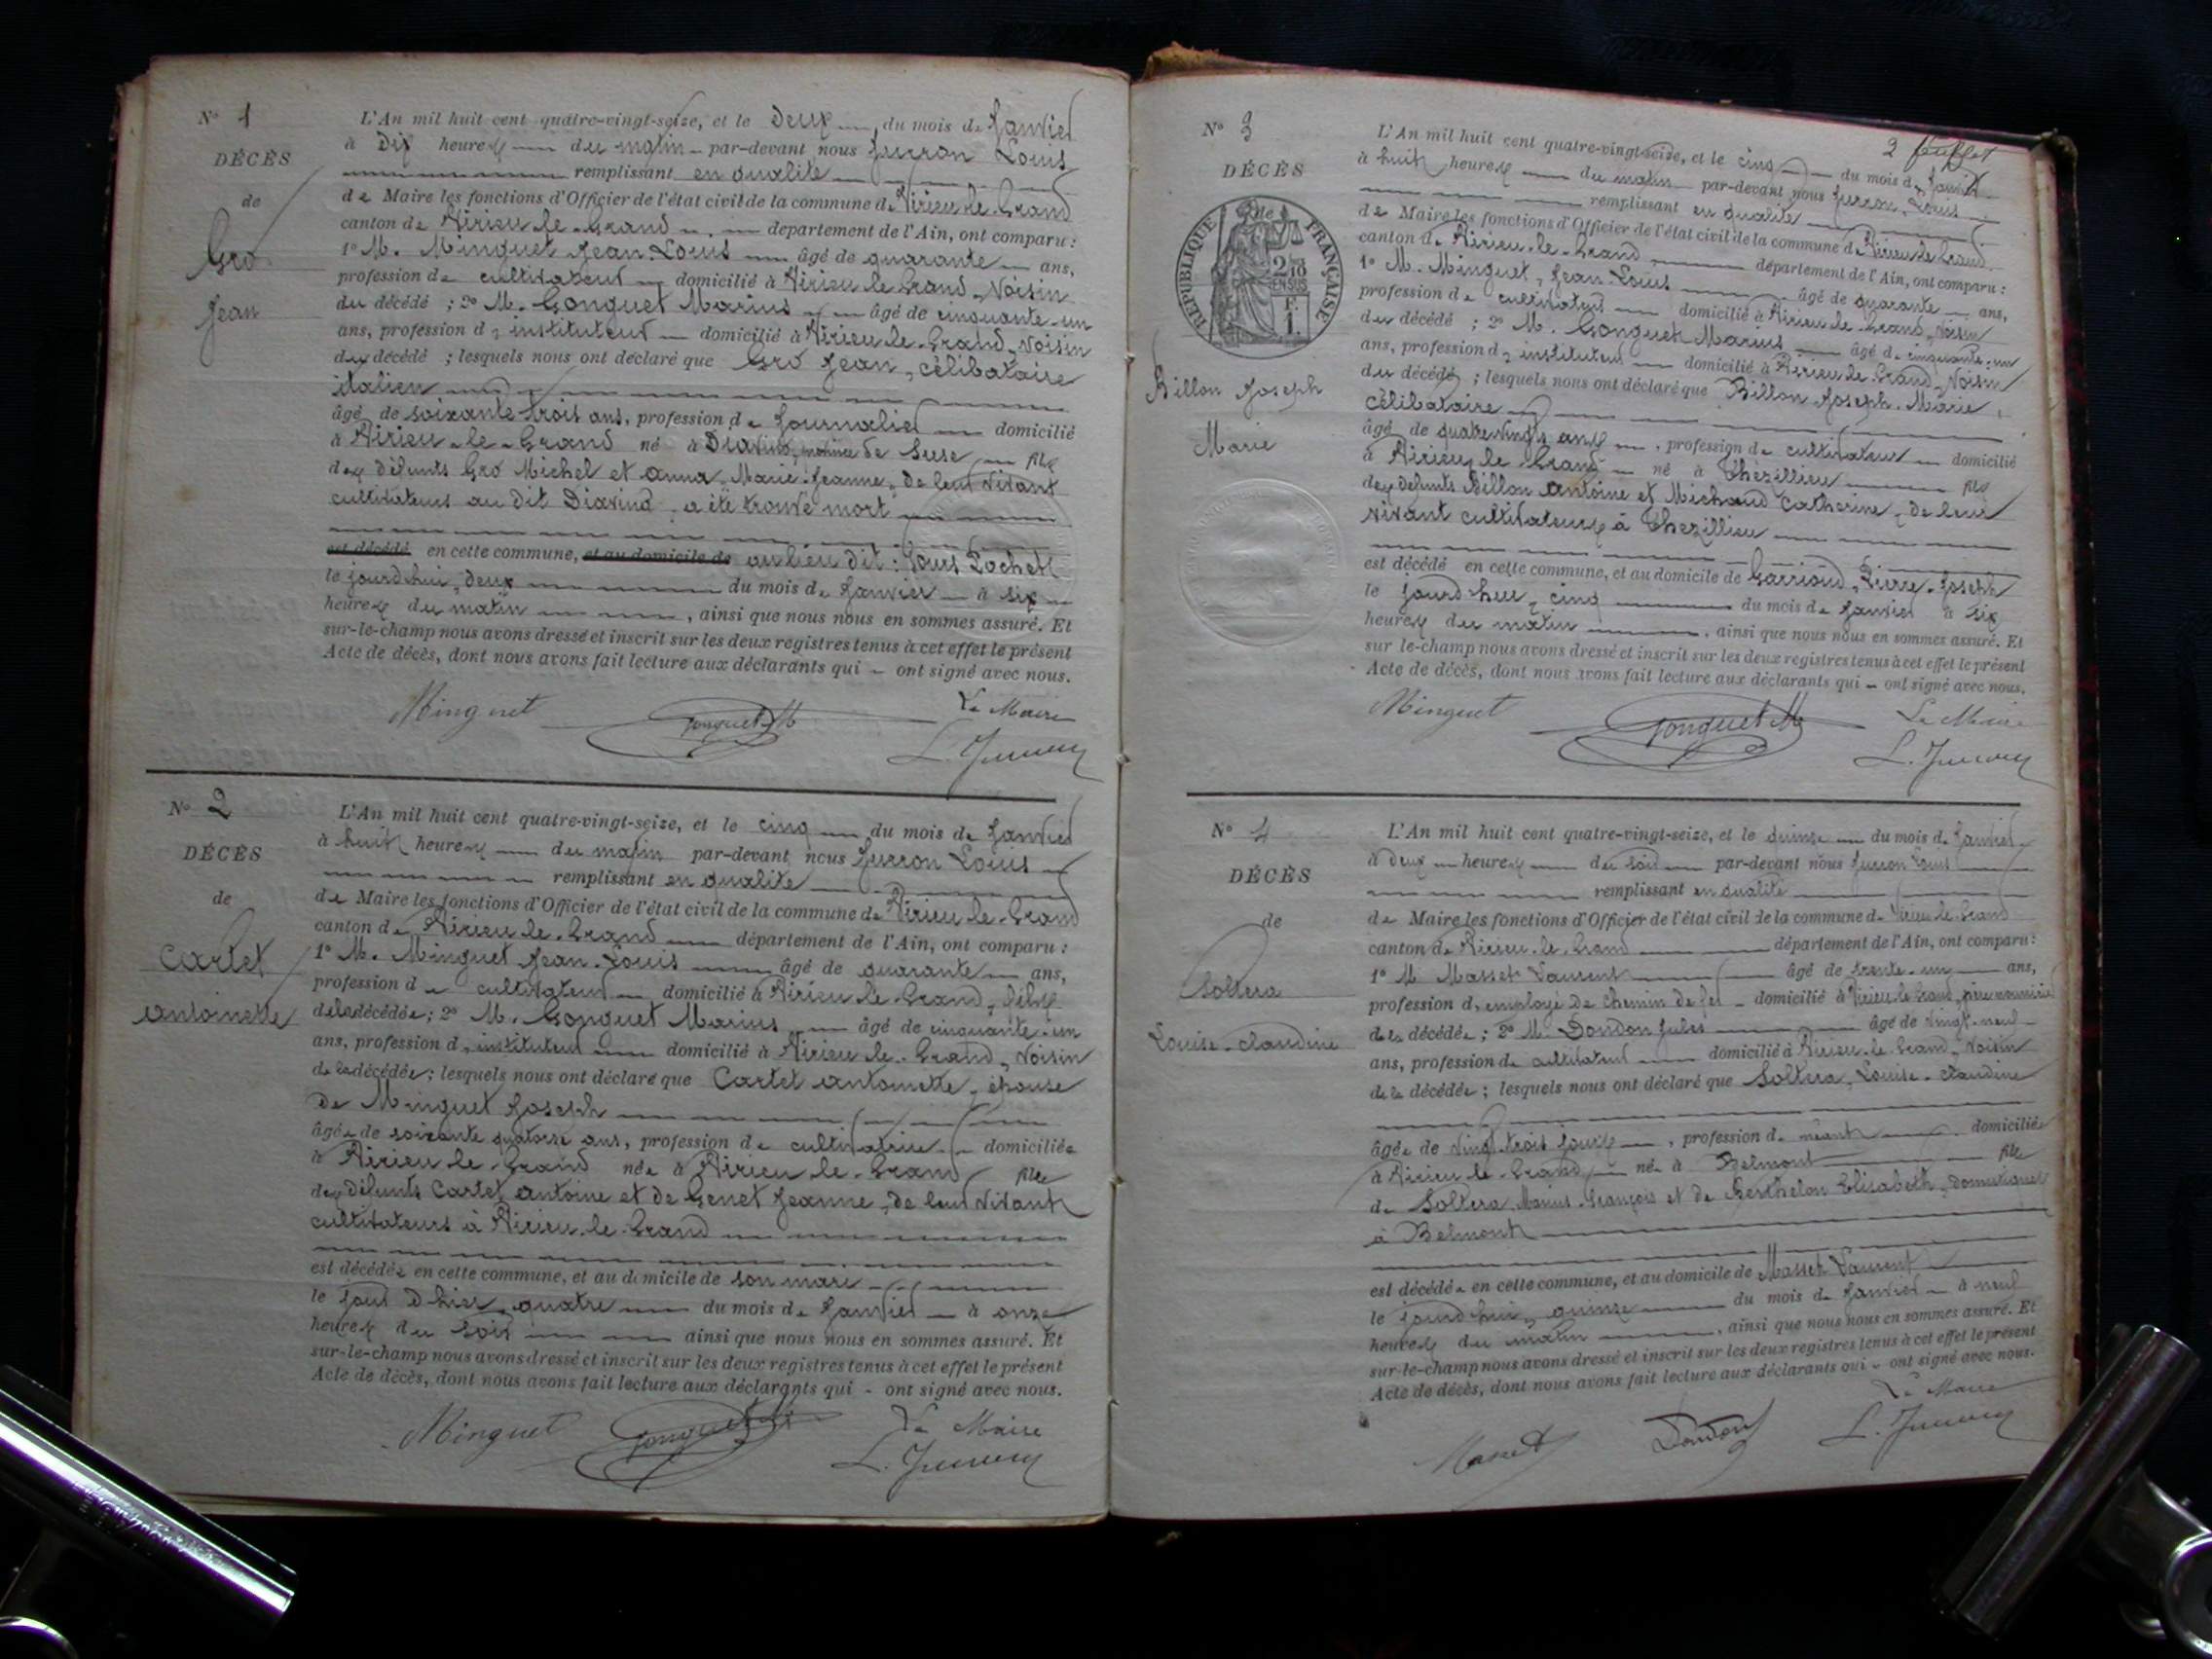 N° 1
DÉCÈS
de
Gro
Jean
L'An mil huit cent quatre-vingt-seize, et le Deux du mois de Janvier
à Dix heures du matin par-devant nous Juvron Louis
remplissant en qualité
de Maire les fonctions d'Officier de l'état civil de la commune de Virieu-le-Grand
canton de Virieu-le-Grand département de l'Ain, ont comparu :
1° M. Minguet Jean-Louis âgé de quarante ans,
profession de cultivateur domicilié à Virieu le Grand, Voisin
du décédé ; 2° M. Gonguet Marius âgé de cinquante-un
ans, profession d'instituteur domicilié à Virieu-le-Grand, Voisin
du décédé ; lesquels nous ont déclaré que Gro Jean, célibataire
italien
âgé de soixante trois ans, profession de Journalier domicilié
à Virieu-le-Grand né à province de Suse fils
des défunts Gro Michel et Anna, Marie-Jeanne, de leur vivant
cultivateurs au dit a été trouvé mort
est décédé en cette commune, et au domicile de au lieu dit : Sous Rochet
le jourd'hui, deux du mois de Janvier à six
heures du matin , ainsi que nous nous en sommes assuré. Et
sur-le-champ nous avons dressé et inscrit sur les deux registres tenus à cet effet le présent
Acte de décès, dont nous avons fait lecture aux déclarants qui - ont signé avec nous.
Minguet Gonguet M Le Maire
L.
N° 2
DÉCÈS
de
Cartet
Antoinette
L'An mil huit cent quatre-vingt-seize, et le cinq du mois de Janvier
à huit heures du matin par-devant nous Juvron Louis
remplissant en qualité
de Maire les fonctions d'Officier de l'état civil de la commune de Virieu-le-Grand
canton de Virieu-le-Grand département de l'Ain, ont comparu :
1° M. Minguet Jean-Louis âgé de quarante ans,
profession de cultivateur domicilié à Virieu-le-Grand,
de la décédée ; 2° M. Gonguet Marius âgé de cinquante-un
ans, profession d'instituteur domicilié à Virieu-le-Grand, Voisin
de la décédée ; lesquels nous ont déclaré que Cartet Antoinette, épouse
de Minguet Joseph
âgée de soixante quatorze ans, profession de cultivatrice domiciliée
à Virieu-le-Grand née à Virieu-le-Grand fille
des défunts Cartet Antoine et de Genet Jeanne, de leur vivant
cultivateurs à Virieu-le-Grand
est décédée en cette commune, et au domicile de son mari
le jour d'hier, quatre du mois de Janvier à onze
heures du soir ainsi que nous nous en sommes assuré. Et
sur-le-champ nous avons dressé et inscrit sur les deux registres tenus à cet effet le présent
Acte de décès, dont nous avons fait lecture aux déclarants qui - ont signé avec nous.
Minguet Gonguet M Le Maire
L.
2 feuillet
N° 3
DÉCÈS
de
REPUBLIQUE FRANÇAISE
2/10 EN SUS
F. 1.
Billon Joseph
Marie
L'An mil huit cent quatre-vingt-seize, et le cinq du mois de Janvier
à huit heures du matin par-devant nous Juvron Louis
remplissant en qualité
de Maire les fonctions d'Officier de l'état civil de la commune de Virieu-le-Grand
canton de Virieu-le-Grand département de l'Ain, ont comparu :
1° M. Minguet, Jean-Louis âgé de quarante ans,
profession de cultivateur domicilié à Virieu-le-Grand, Voisin
du décédé ; 2° M. Gonguet Marius âgé de cinquante-un
ans, profession d'instituteur domicilié à Virieu-le-Grand, Voisin
du décédé ; lesquels nous ont déclaré que Billon Joseph-Marie,
célibataire
âgé de quatre vingts ans , profession de cultivateur domicilié
à Virieu-le-Grand né à Thézillieu fils
des défunts Billon Antoine et Michaud Catherine, de leur
vivant cultivateurs à Thezillieu
est décédé en cette commune, et au domicile de Garriond, Pierre-Joseph
le jourd'hui, cinq du mois de Janvier à six
heures du matin , ainsi que nous nous en sommes assuré. Et
sur le-champ nous avons dressé et inscrit sur les deux registres tenus à cet effet le présent
Acte de décès, dont nous avons fait lecture aux déclarants qui - ont signé avec nous.
Minguet Gonguet M Le Maire
L.
N° 4
DÉCÈS
de
Soltera
Louise-Claudine
L'An mil huit cent quatre-vingt-seize, et le quinze du mois de Janvier
à deux heures du soir par-devant nous Juvron Louis
remplissant en qualité
de Maire les fonctions d'Officier de l'état civil de la commune de Virieu-le-Grand
canton de Virieu-le-Grand département de l'Ain, ont comparu :
1° M. Masset Laurent âgé de trente-un ans,
profession d'employé de chemin de fer domicilié à Virieu-le-Grand, père nourricier
de la décédée ; 2° M. Dondon Jules âgé de vingt-neuf
ans, profession de cultivateur domicilié à Virieu-le-Grand, Voisin
de la décédée ; lesquels nous ont déclaré que Soltera, Louise-Claudine
âgée de vingt trois jours , profession de néant domiciliée
à Virieu-le-Grand née à Belmont fille
de Soltera Marius-François et de Berthelon Elisabeth, domestiques
à Belmont
est décédée en cette commune, et au domicile de Masset Laurent
le jourd'hui, quinze du mois de Janvier à neuf
heures du matin , ainsi que nous nous en sommes assuré. Et
sur-le-champ nous avons dressé et inscrit sur les deux registres tenus à cet effet le présent
Acte de décès, dont nous avons fait lecture aux déclarants qui - ont signé avec nous.
Masset Dondon Le Maire
L.